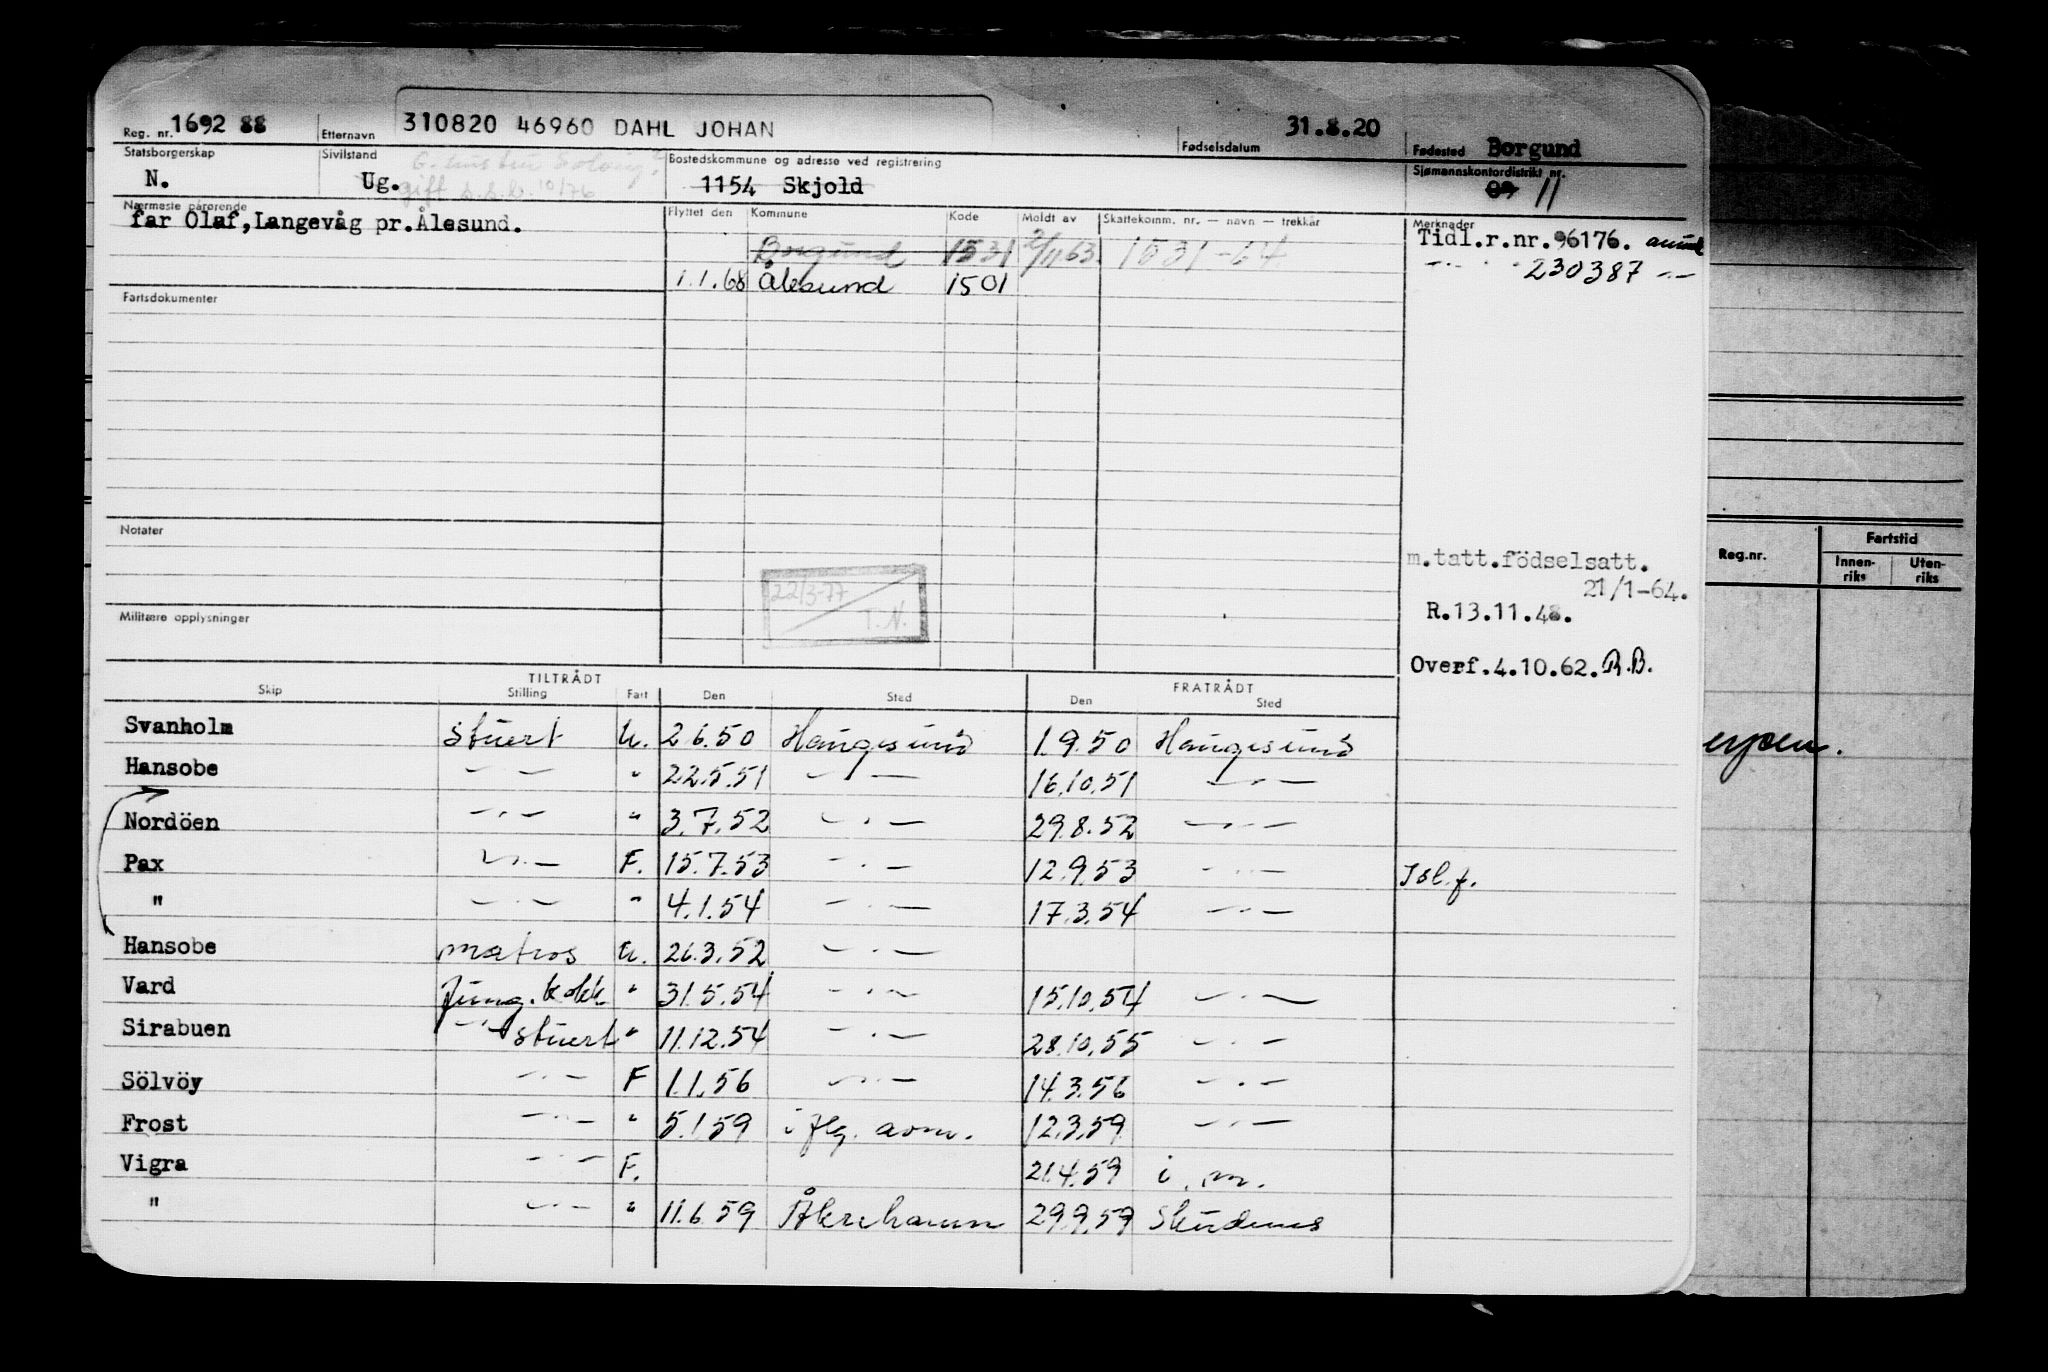 Reg. nr. 1692 88 Etternavn 310820 46960 DAHL JOHAN Fødselsdatum 31.8.20 Fødested Borgund
Statsborgerskap N. Sivilstand Ug. gift 10/76
Bostedskommune og adresse ved registrering 1154 Skjold
Sjømannskontordistrikt nr. 09 11
Nærmeste pårørende
far Olaf, Langevåg pr. Ålesund.
Flyttet den Kommune Kode Meldt av Skattekomm. nr. — navn — trekkår
Borgund 1531 2/11 63. 1531-64
1.1.68 Ålesund 1501
Merknader
Tidl.r.nr. 96176.
— " — 230387 — " —
Fartsdokumenter
Notater
22/3-77
T.N.
Militære opplysninger
m.tatt.födselsatt.
21/1-64.
R.13.11.48.
Overf.4.10.62. R.B.
TILTRÅDT FRATRÅDT
Skip Stilling Fart Den Sted Den Sted
Svanholm Stuert U. 2.6.50 Haugesund 1.9.50 Haugesund
Hansobe — " — " 22.5.51 — " — 16.10.51 — " —
Nordöen — " — " 3.7.52 — " — 29.8.52 — " —
Pax — " — F. 15.7.53 — " — 12.9.53 — " — Isl.f.
" — " — " 4.1.54 — " — 17.3.54 — " —
Hansobe matros U. 26.3.52 — " —
Vard Jung. kokk " 31.5.54 — " — 15.10.54 — " —
Sirabuen stuert " 11.12.54 — " — 28.10.55 — " —
Sölvöy — " — F 1.1.56 — " — 14.3.56 — " —
Frost — " — " 5.1.59 i flg. 12.3.59 — " —
Vigra — " — F. 21.4.59 i. m.
" — " — " 11.6.59 Åkrehamn 29.9.59 Skudenes
Reg.nr. Fartstid
Innenriks Utenriks